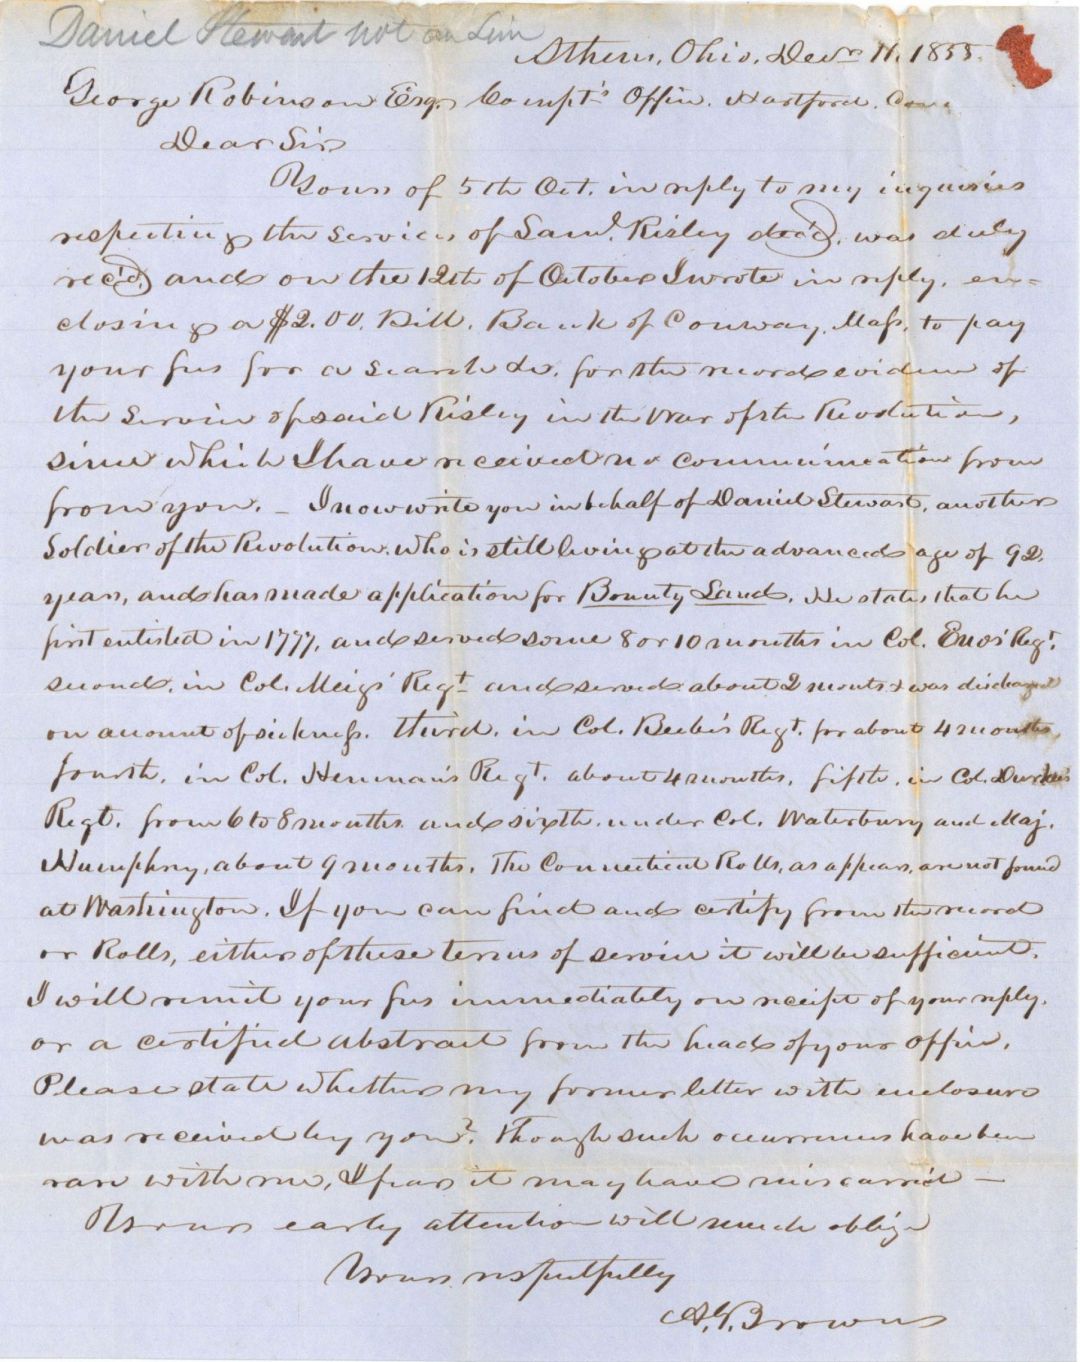 Daniel Stewart not on Line
Athens, Ohio, Decr 11, 1855.
George Robinson Esqr Compt's Office. Hartford. Con
Dear Sir
Yours of 5th Oct. in reply to my inquiries
respecting the services of Saml. Risley dec'd, was duly
rec'd, and on the 12th of October I wrote in reply, en=
closing a $2.00. Bill, Bank of Conway, Mass, to pay
your fees for a search &c. for the record evidence of
the service of said Risley in the War of the Revolution,
since which I have received no communication from
from you. – I now write you in behalf of Daniel Stewart, another
Soldier of the Revolution, who is still living at the advanced age of 92
years, and has made application for Bounty Land. He states that he
first enlisted in 1777, and served some 8 or 10 months in Col. Enos' Regt.
second, in Col. Meigs' Regt and served about 2 months & was discharged
on account of sickness. third, in Col. Beebe's Regt. for about 4 months,
fourth, in Col. Henman's Regt. about 4 months, fifth, in Col. Durkee's
Regt. from 6 to 8 months and sixth, under Col. Waterbury and Maj.
Humphrey, about 9 months. The Connecticut Rolls, as appears, are not found
at Washington. If you can find and certify from the record
or Rolls, either of these terms of service it will be sufficient.
I will remit your fees immediately on receipt of your reply,
or a certified abstract from the head of your office.
Please state whether my former letter with enclosure
was received by you? Though such occurrences have been
rare with me, I fear it may have miscarried –
Your early attention will much oblige
Yours respectfully
A. G. Brown